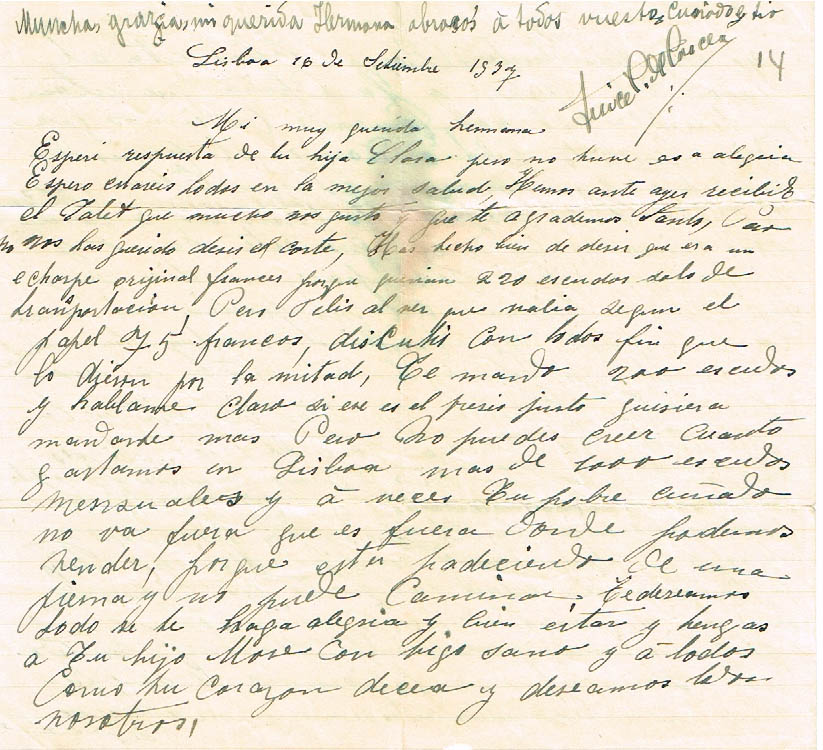 Munchas grazia, mi querida Hermana abrasos à todos vuestro Cuniado y tio
14
Lisboa 16 de Setiembre 1937
Mi muy querida hermana
Esperi respuesta de tu hija Clara pero no tuve esa alegria
Espero estareis todos en la mejor salud, Hemos ante ayer recibido
el Talet que mucho nos gustó y que te agrademos tanto, Pero
no nos has querido desir el coste, Has hecho bien de desir que era un
echarpe original frances porque querian 220 escudos solo de
transportación, Pero Felis al ver que valia segun el
papel 75 francos, discutió con todos fin que
lo dieron por la mitad, Te mando 200 escudos
y hablame claro si ese es el presio justo quisiera
mandarte mas Pero no puedes creer cuanto
gastamos en Lisboa mas de 1000 escudos
mensuales y à veces Tu pobre cuñado
no va fuera que es fuera donde podemos
vender, porque està padeciendo de una
pierna y no puede Caminar. Te deseamos
todo se te haga alegria y bien estar y tengas
a Tu hijo Mose con tigo sano y à todos
Como tu corazon decea y deseamos todos
nosotros,